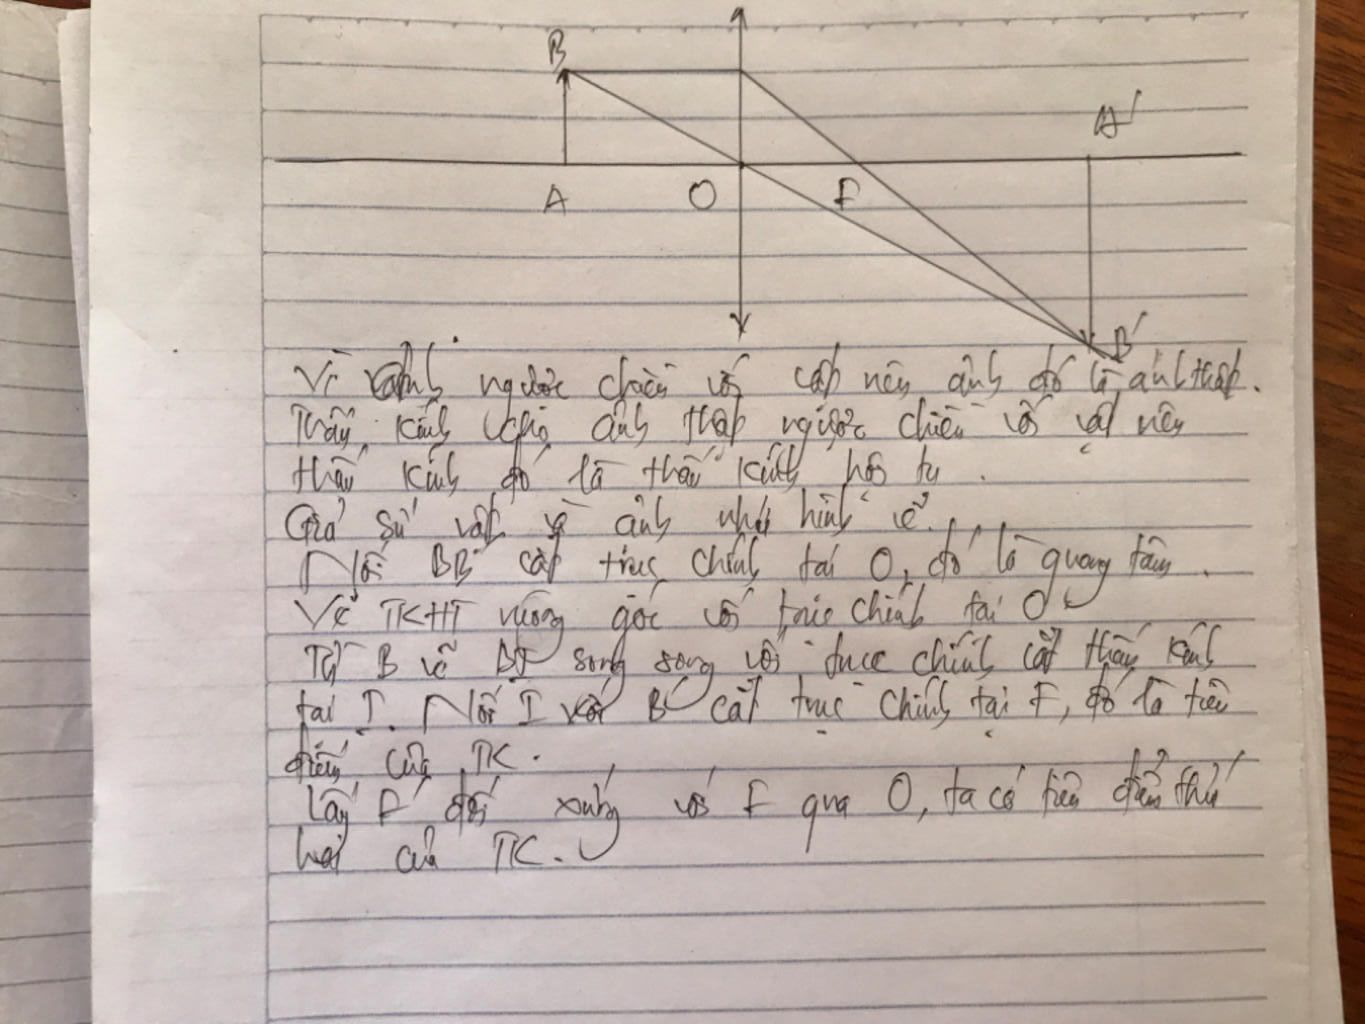 B
A'
A O F
B'
Vì ảnh ngược chiều với vật nên ảnh đó là ảnh thật.
Thấu kính cho ảnh thật ngược chiều với vật nên
thấu kính đó là thấu kính hội tụ.
Giả sử vật và ảnh như hình vẽ.
Nối BB' cắt trục chính tại O, đó là quang tâm.
Vẽ TKHT vuông góc với trục chính tại O
Từ B vẽ BI song song với trục chính cắt thấu kính
tại I. Nối I với B' cắt trục chính tại F, đó là tiêu
điểm của TK.
Lấy F' đối xứng với F qua O, ta có tiêu điểm thứ
hai của TK.